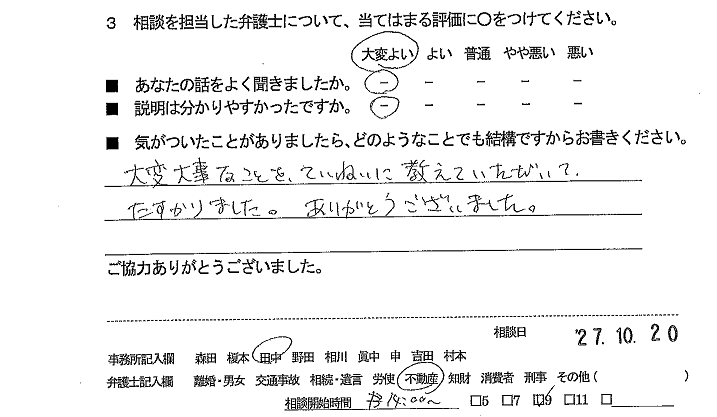 3 相談を担当した弁護士について、当てはまる評価に○をつけてください。
大変よい よい 普通 やや悪い 悪い
■ あなたの話をよく聞きましたか。 － － － － －
■ 説明は分かりやすかったですか。 － － － － －
■ 気がついたことがありましたら、どのようなことでも結構ですからお書きください。
大変大事なことを、ていねいに教えていただいて、
たすかりました。 ありがとうございました。
ご協力ありがとうございました。
相談日 '27.10.20
事務所記入欄 森田 榎本 田中 野田 相川 眞中 申 吉田 村本
弁護士記入欄 離婚・男女 交通事故 相続・遺言 労使 不動産 知財 消費者 刑事 その他( )
相談開始時間 14:00～ □5 □7 □9 □11 □